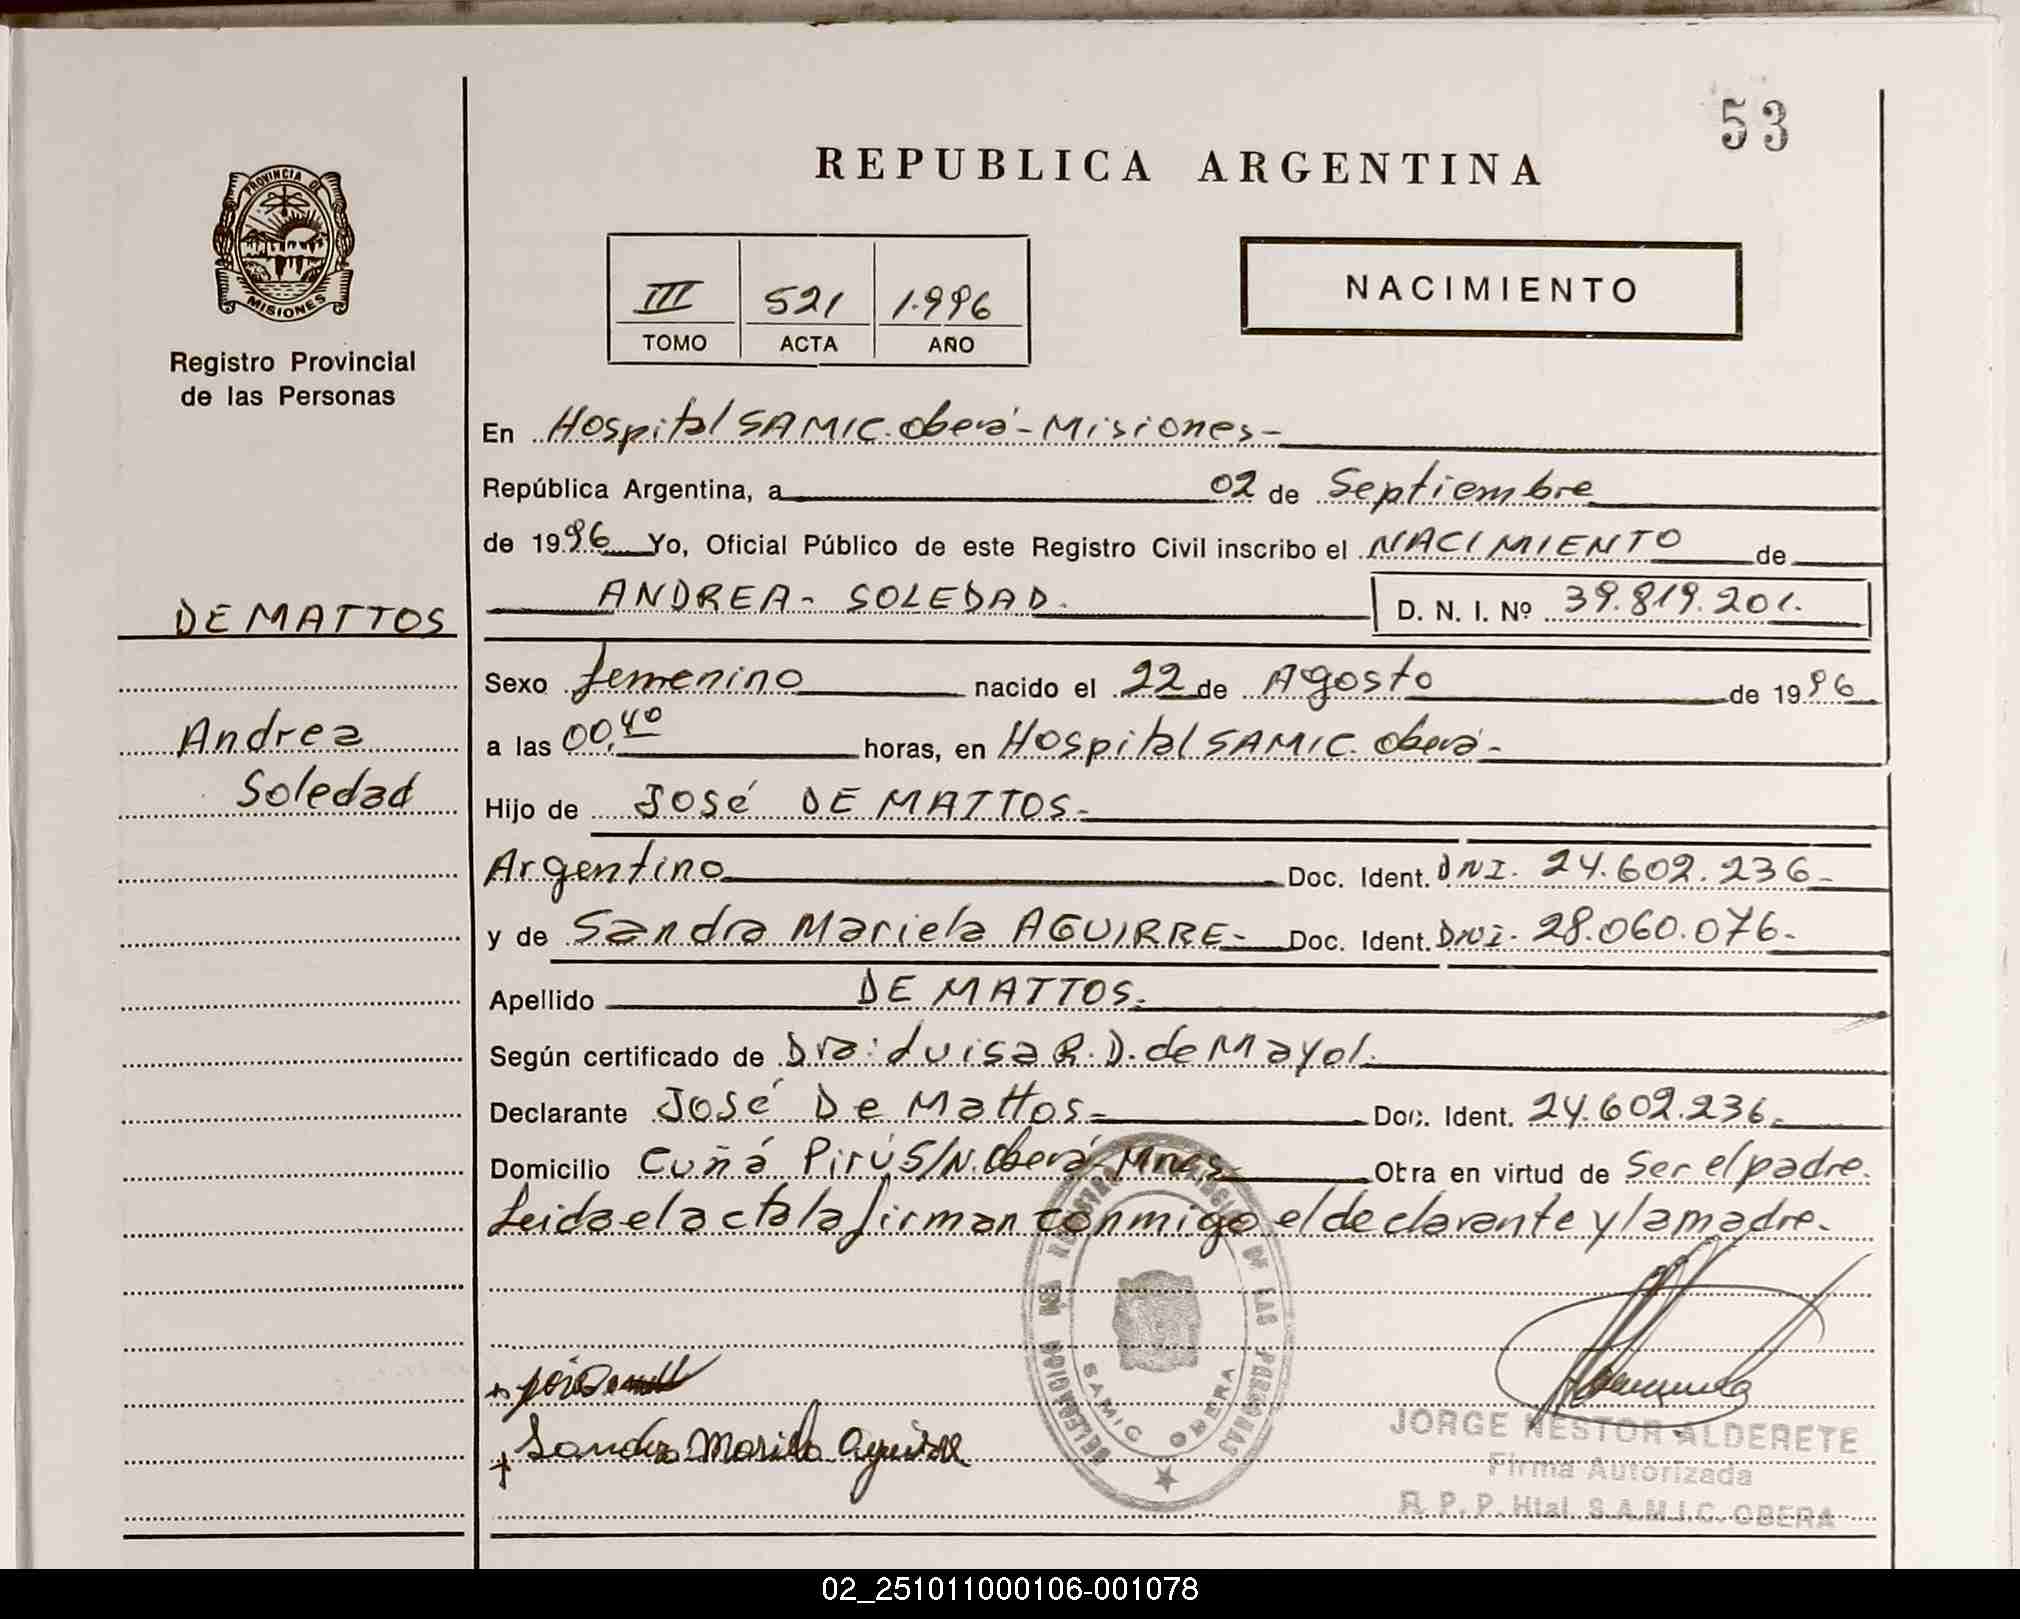 53
REPUBLICA ARGENTINA
PROVINCIA DE
MISIONES
Registro Provincial
de las Personas
III 521 1.996
TOMO ACTA AÑO
NACIMIENTO
En Hospital SAMIC. Oberá - Misiones -
República Argentina, a 02 de Septiembre
de 1996 Yo, Oficial Público de este Registro Civil inscribo el NACIMIENTO de
DE MATTOS
ANDREA - SOLEDAD. D. N. I. Nº 39.819.201.
Sexo femenino nacido el 22 de Agosto de 1996
Andrea
a las 00,40 horas, en Hospital SAMIC. Oberá -
Soledad
Hijo de José DE MATTOS -
Argentino Doc. Ident. DNI. 24.602.236 -
y de Sandra Mariela AGUIRRE - Doc. Ident. DNI. 28.060.076 -
Apellido DE MATTOS.
Según certificado de Dra: Luisa R. D. de Mayol.
Declarante José De Mattos - Doc. Ident. 24.602.236 -
Domicilio Cuñá Pirú S/N. Oberá - Mnes Obra en virtud de ser el padre.
Leida el acta la firman conmigo el declarante y la madre.
DELEGACION REGISTRO PROVINCIAL DE LAS PERSONAS
SAMIC OBERA
Sandra Mariela Aguirre
JORGE NESTOR ALDERETE
Firma Autorizada
R. P. P. Htal. S.A.M.I.C. OBERA
02_251011000106-001078